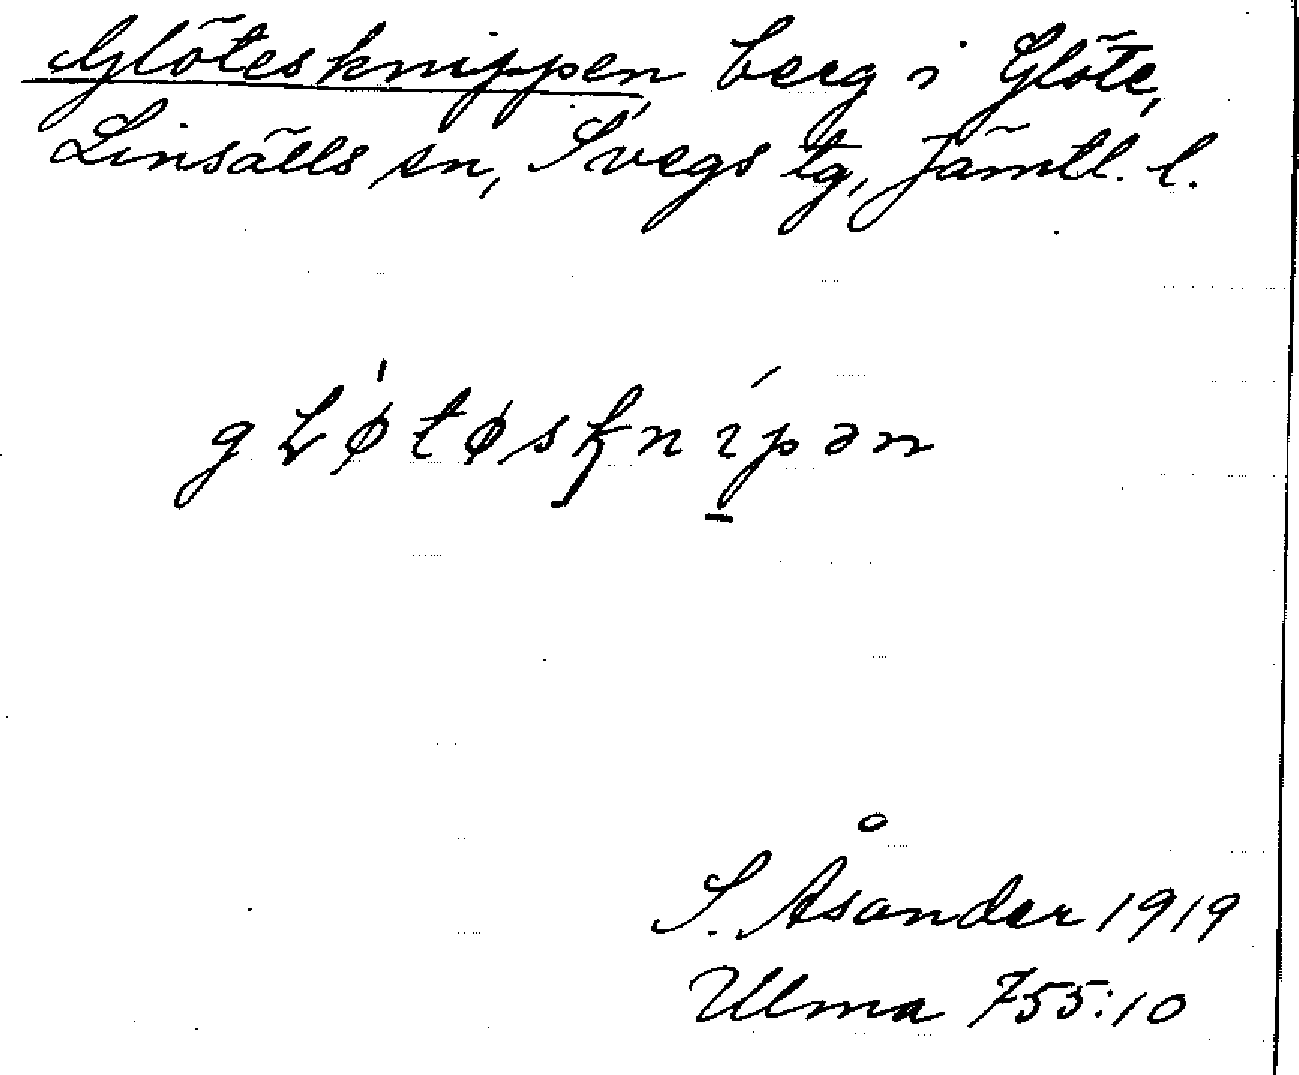 Glötesknippen berg i Glöte,
Linsälls sn, Svegs tg, Jämtl. l.
gLø̍tøsknípən
S. Åsander 1919
Ulma 755:10